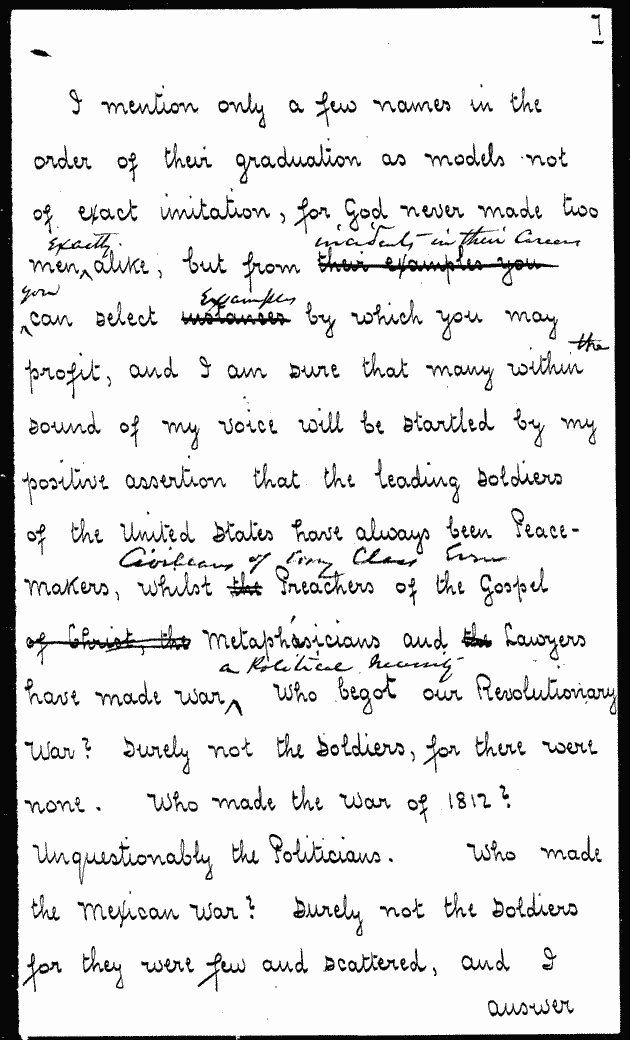 7
I mention only a few names in the
order of their graduation as models not
of exact imitation, for God never made two
exactly incidents in their Careers
men alike, but from their examples you
you Examples
can select instances by which you may
the
profit, and I am sure that many within
sound of my voice will be startled by my
positive assertion that the leading soldiers
of the United States have always been Peace-
Civilians of every Class even
makers, whilst the Preachers of the Gospel
of Christ, the Metaphasicians and the Lawyers
a Political necessity
have made war Who begot our Revolutionary
War? Surely not the Soldiers, for there were
none. Who made the War of 1812?
Unquestionably the Politicians. Who made
the Mexican War? Surely not the Soldiers
for they were few and scattered, and I
answer